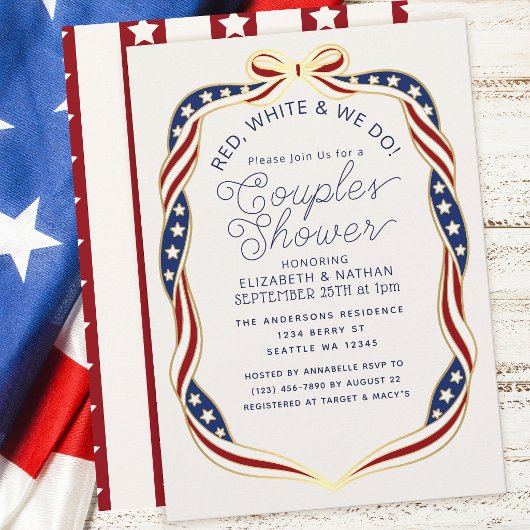 RED, WHITE & WE DO!
Please Join Us for a
Couples
Shower
HONORING
ELIZABETH & NATHAN
SEPTEMBER 25TH at 1pm
THE ANDERSONS RESIDENCE
1234 BERRY ST
SEATTLE WA 12345
HOSTED BY ANNABELLE RSVP TO
(123) 456-7890 BY AUGUST 22
REGISTERED AT TARGET & MACY'S